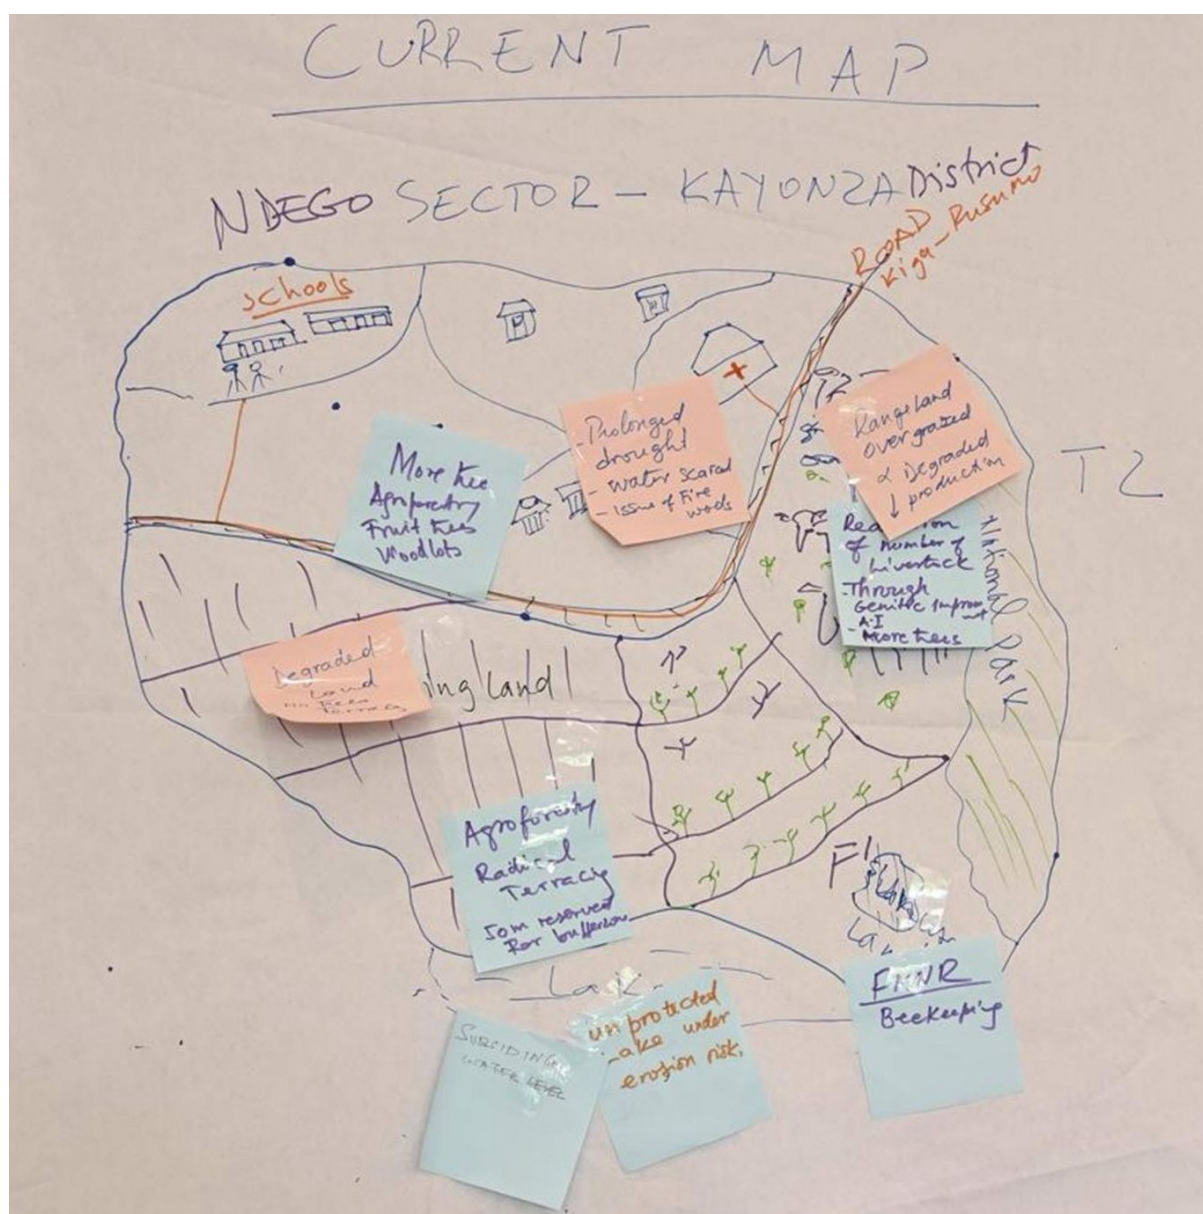 CURRENT MAP
NDEGO SECTOR - KAYONZA District
ROAD
Kiga-Rusumo
schools
More tree
Agroforestry
Fruit trees
Woodlots
- Prolonged
drought
- water scared
- issue of Fire
woods
Rangeland
overgrazed
& Degraded
↓ production
T2
of number of
Livestock
- Through
Genitic Improv
- A-I
More trees
National Park
Degraded
Land
no trees
Terraces
ing land
Agroforestry
Radical
Terracing
50m reserved
For
Lak
SUBSIDING
WATER LEVEL
unprotected
Lake under
erosion risk.
FMNR
Beekeeping